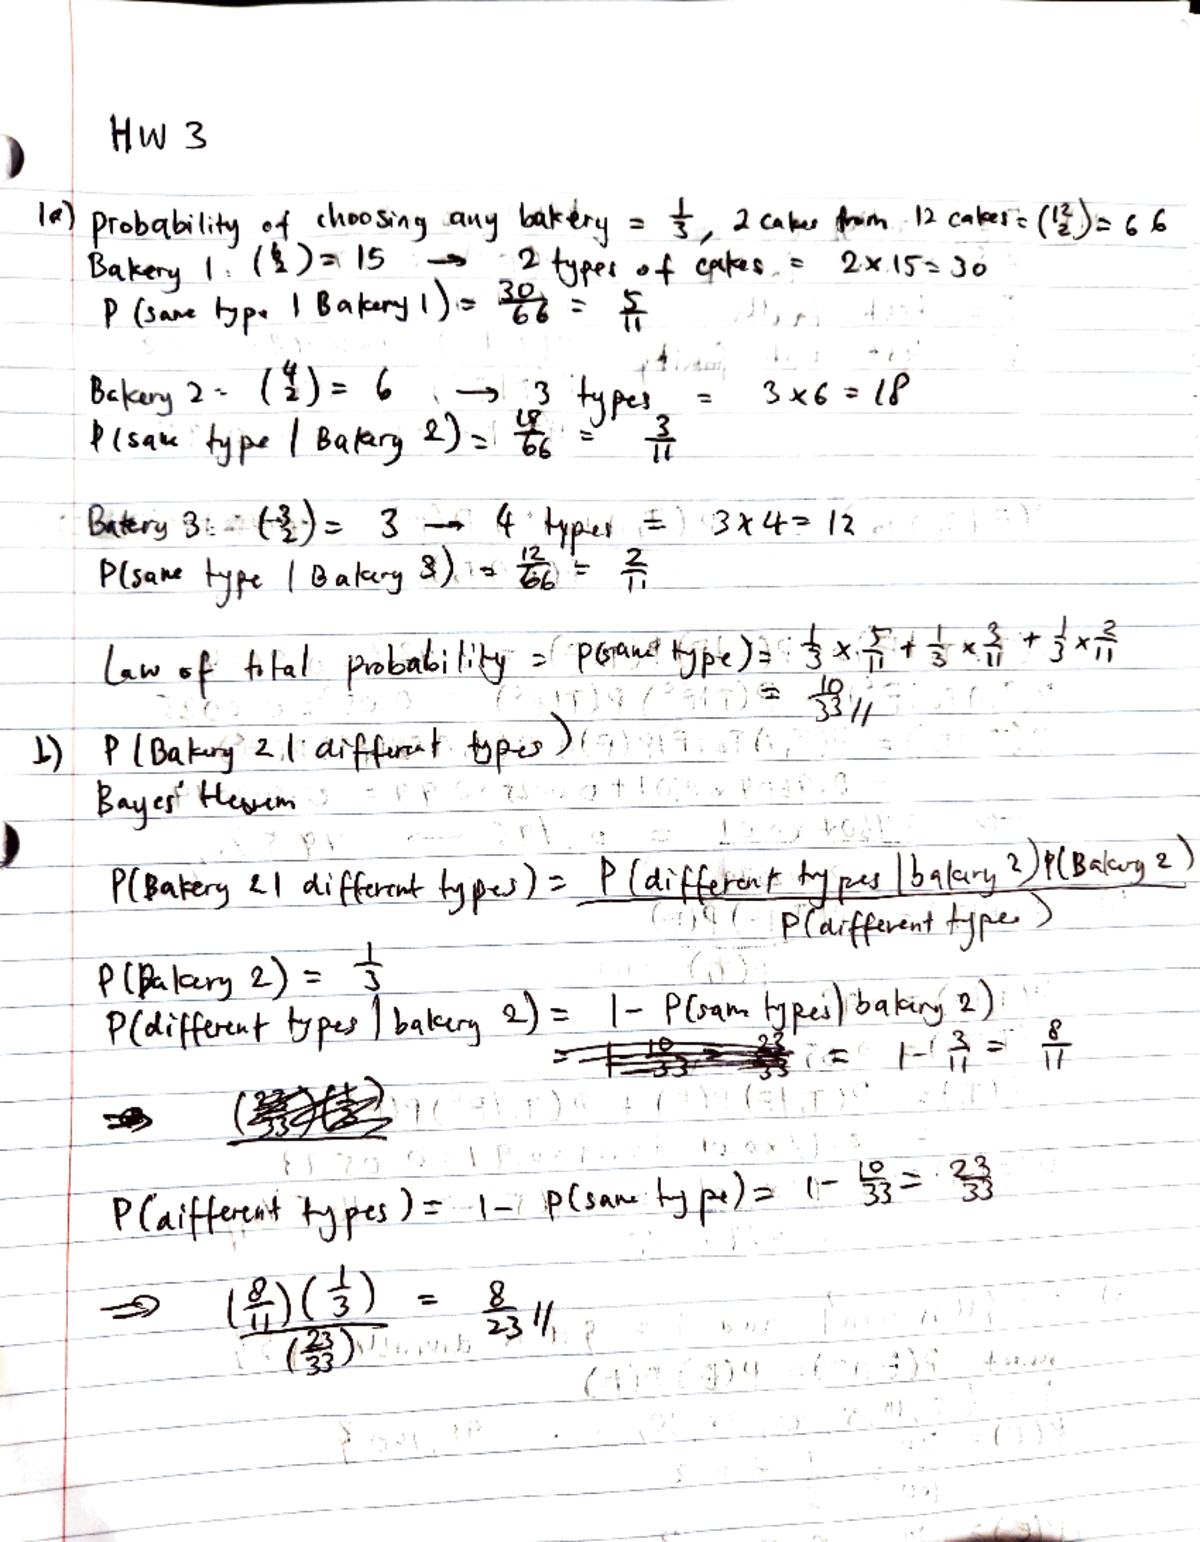 HW 3
1a) Probability of choosing any bakery = 1/3, 2 cakes from 12 cakes = (12 2) = 66
Bakery 1: (6 2) = 15 → 2 types of cakes = 2 × 15 = 30
P(same type | Bakery 1) = 30/66 = 5/11
Bakery 2 - (4 2) = 6 → 3 types = 3 × 6 = 18
P(same type | Bakery 2) = 18/66 = 3/11
Bakery 3: (3 2) = 3 → 4 types = 3 × 4 = 12
P(same type | Bakery 3) = 12/66 = 2/11
Law of total probability = P(same type) = 1/3 × 5/11 + 1/3 × 3/11 + 1/3 × 2/11
= 10/33 //
b) P(Bakery 2 | different types)
Bayes' theorem
P(Bakery 2 | different types) = P(different types | bakery 2) P(Bakery 2) / P(different types)
P(Bakery 2) = 1/3
P(different types | bakery 2) = 1 - P(same types | bakery 2)
= 1 - 3/11 = 8/11
P(different types) = 1 - P(same type) = 1 - 10/33 = 23/33
⇒ (8/11)(1/3) / (23/33) = 8/23 //